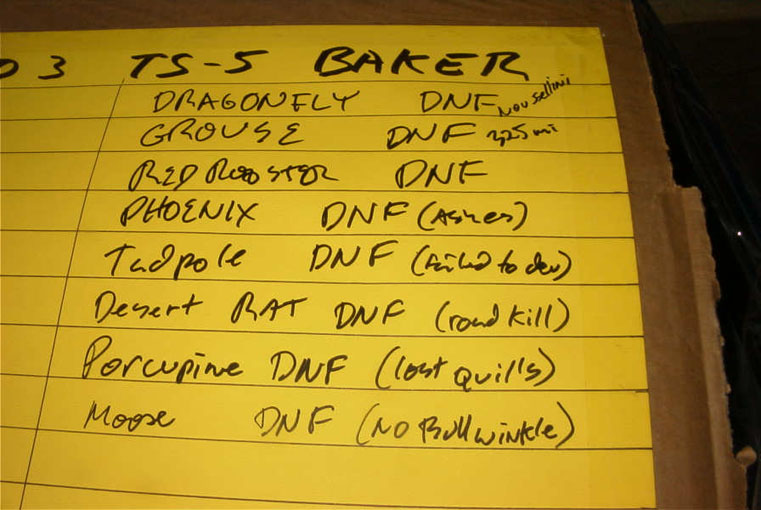 03 TS-5 BAKER
DRAGONFLY DNF
GROUSE DNF 325 mi
RED ROOSTER DNF
PHOENIX DNF (Ashes)
Tadpole DNF (failed to dev)
Desert RAT DNF (road kill)
Porcupine DNF (lost quills)
Moose DNF (NO Bullwinkle)